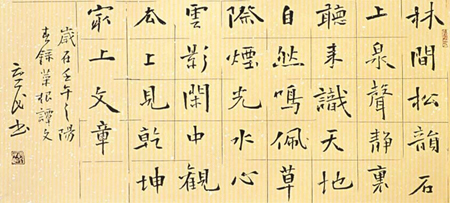 林間松韻石
上泉聲靜裏
聽来識天地
自然鳴佩草
際煙光水心
雲影閑中觀
去上見乾坤
冣上文章
歲在壬午之陽
春録菜根譚文
書